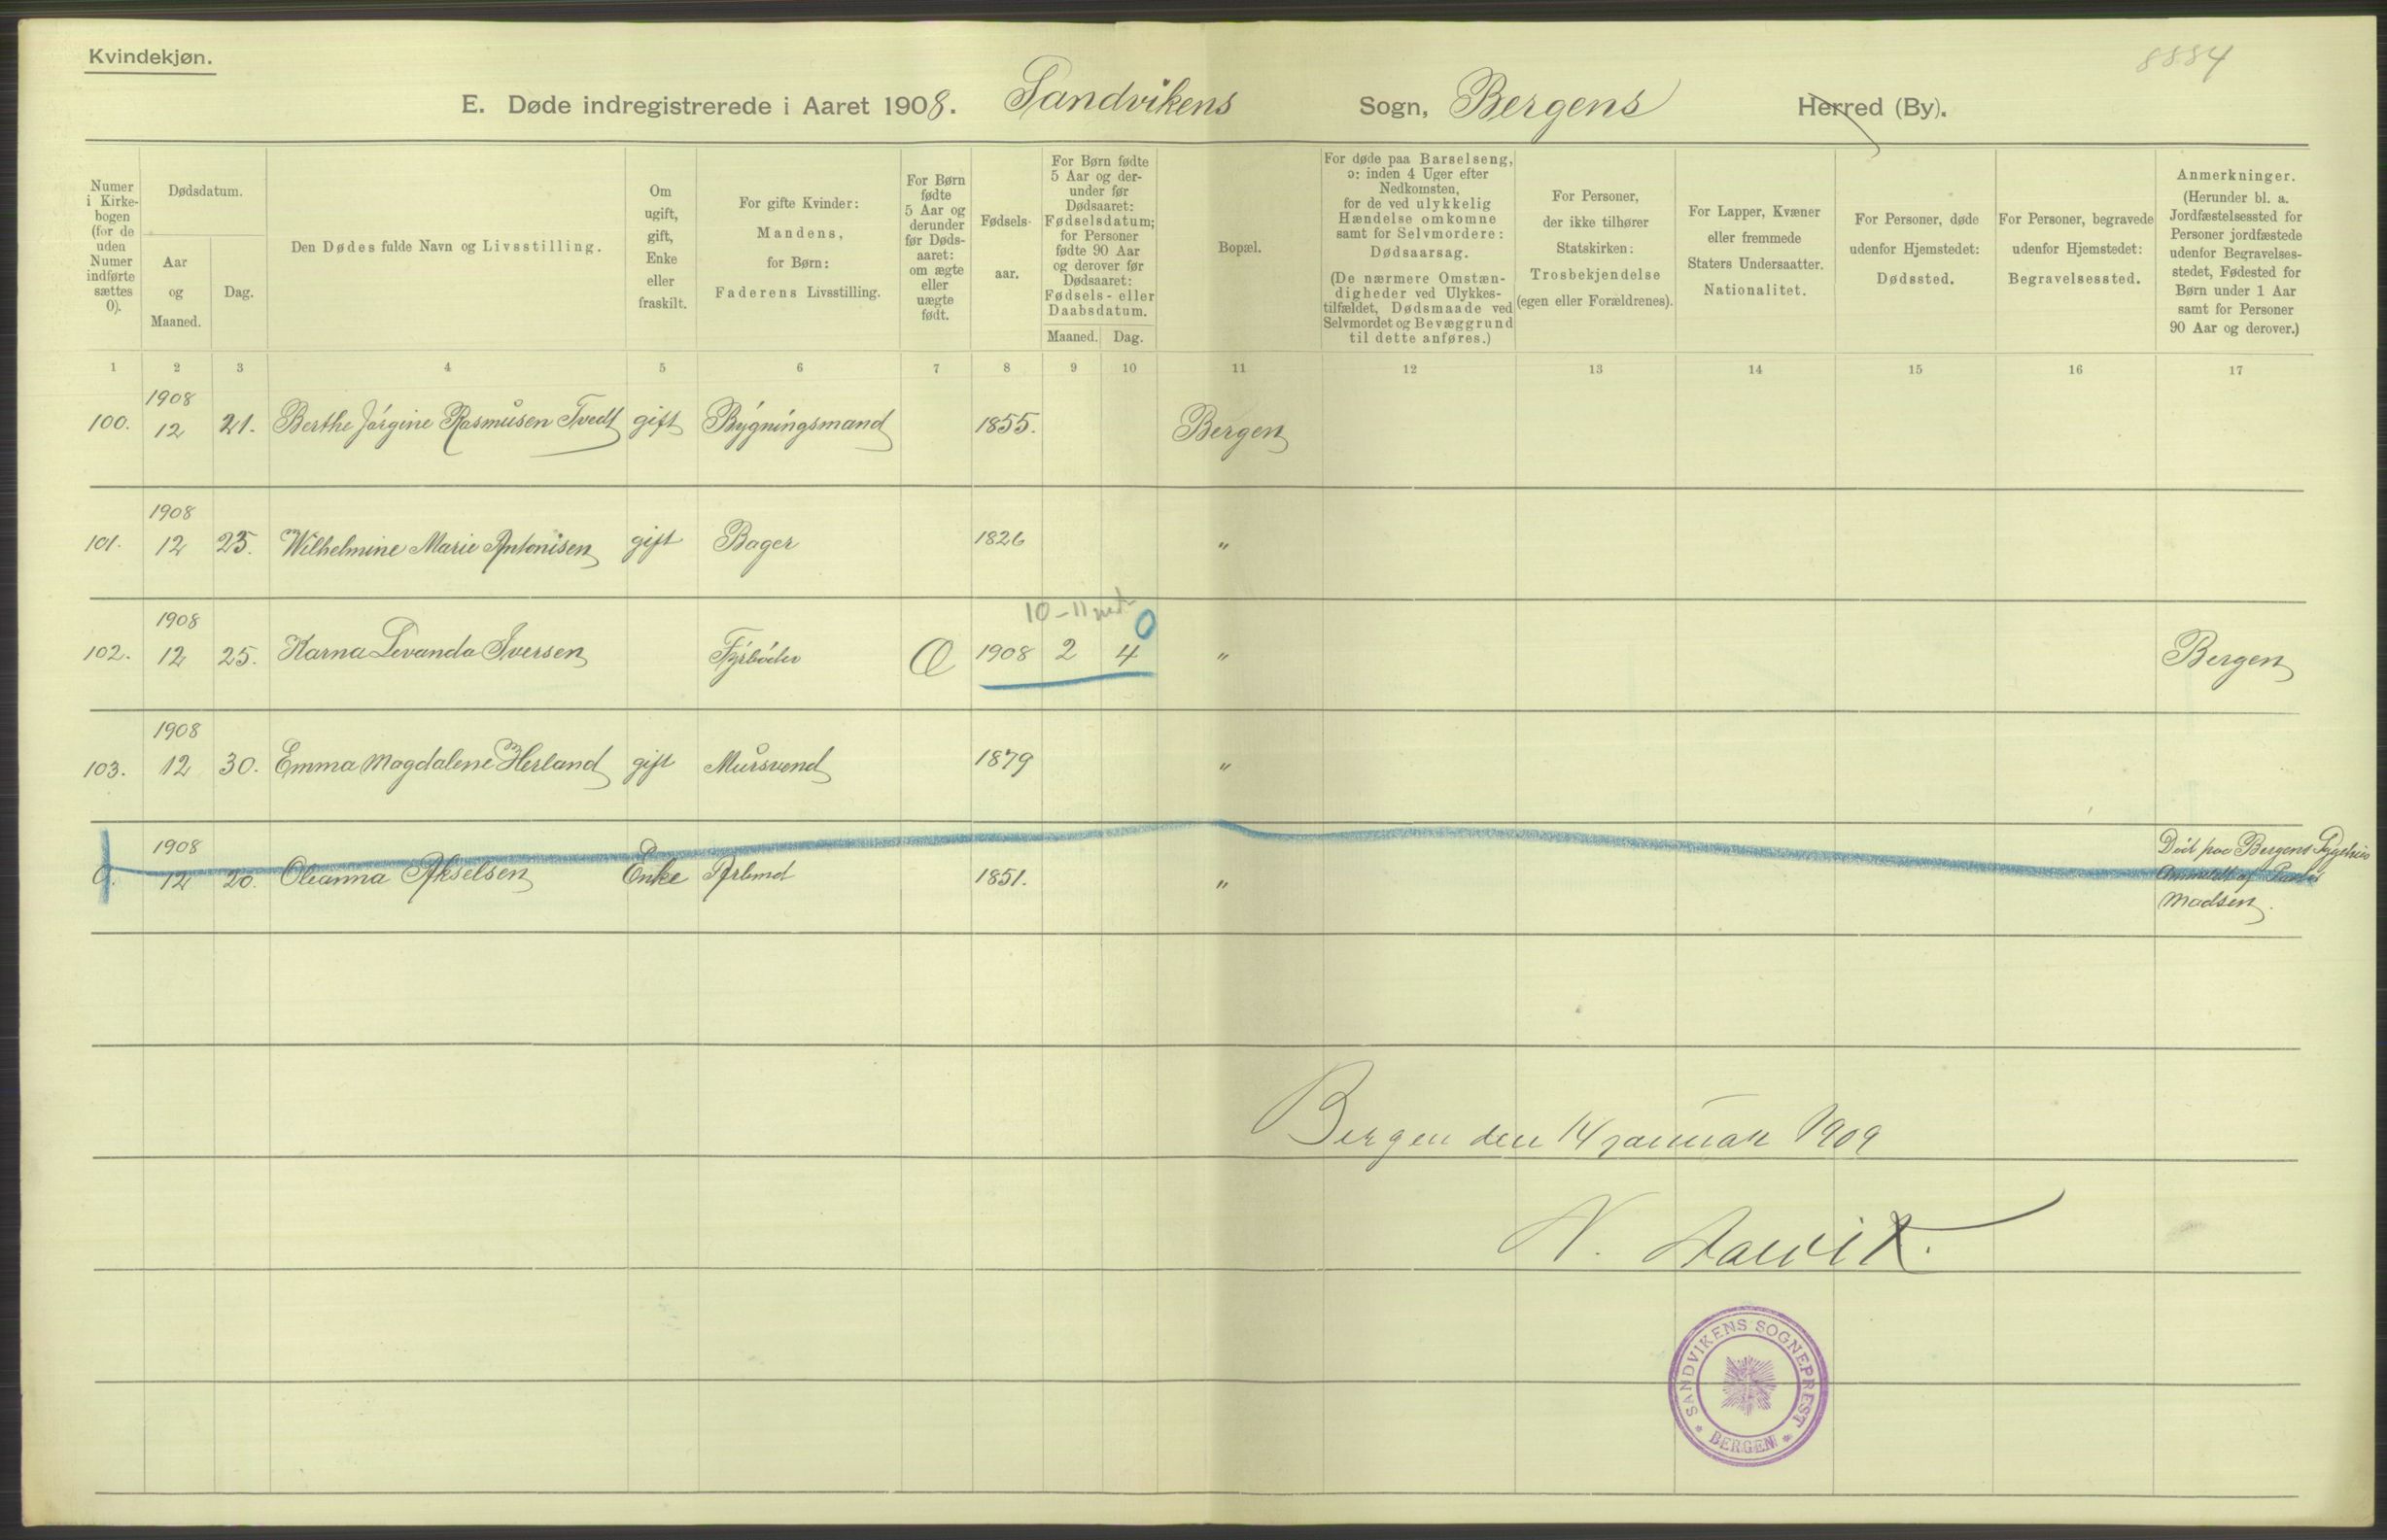 Kvindekjøn.
8884
E. Døde indregistrerede i Aaret 1908. Sandvikens Sogn, Bergens Herred (By).
Numer i Kirkebogen (for de uden Numer indførte sættes 0).
Dødsdatum.
Aar og Maaned.
Dag.
Den Dødes fulde Navn og Livsstilling.
Om ugift, gift, Enke eller fraskilt.
For gifte Kvinder: Mandens, for Børn: Faderens Livsstilling.
For Børn fødte 5 Aar og derunder før Dødsaaret: om ægte eller uægte født.
Fødselsaar.
For Børn fødte 5 Aar og derunder før Dødsaaret: Fødselsdatum; for Personer fødte 90 Aar og derover før Dødsaaret: Fødsels- eller Daabsdatum.
Maaned. Dag.
Bopæl.
For døde paa Barselseng, ɔ: inden 4 Uger efter Nedkomsten, for de ved ulykkelig Hændelse omkomne samt for Selvmordere: Dødsaarsag. (De nærmere Omstændigheder ved Ulykkestilfældet, Dødsmaade ved Selvmordet og Bevæggrund til dette anføres.)
For Personer, der ikke tilhører Statskirken: Trosbekjendelse (egen eller Forældrenes).
For Lapper, Kvæner eller fremmede Staters Undersaatter. Nationalitet.
For Personer, døde udenfor Hjemstedet: Dødssted.
For Personer, begravede udenfor Hjemstedet: Begravelsessted.
Anmerkninger. (Herunder bl. a. Jordfæstelsessted for Personer jordfæstede udenfor Begravelsesstedet, Fødested for Børn under 1 Aar samt for Personer 90 Aar og derover.)
1 2 3 4 5 6 7 8 9 10 11 12 13 14 15 16 17
1908
100. 12 21. Berthe Jørgine Rasmusen Tvedt gift Bygningsmand 1855. Bergen
1908
101. 12 23. Wilhelmine Marie Antonisen gift Bager 1826 "
10-11 mdr 0
1908
102. 12 25. Karna Levanda Iversen Fyrbøder Æ 1908 2 4 " Bergen
1908
103. 12 30. Emma Magdalene Herland gift Mursvend 1879 "
1908
0. 12 20. Oleanna Akselsen Enke Arbmd 1851. "
Död paa Bergens Sygehus
Anmeldt af
Madsen.
Bergen den 14 januar 1909
SANDVIKENS SOGNEPREST
BERGEN